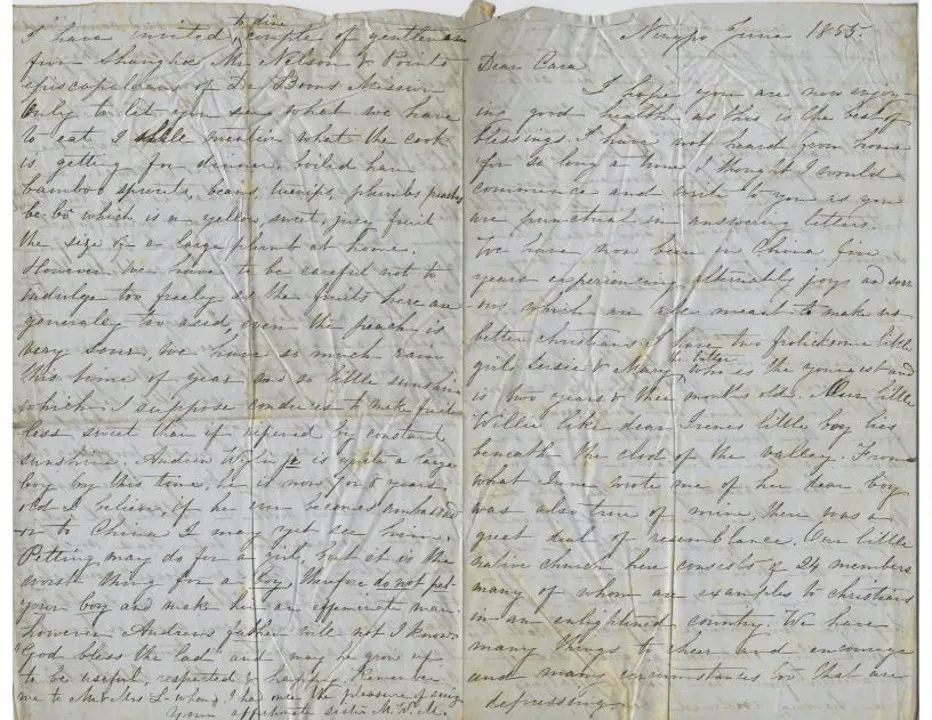 I have invited to dine couple of gentlemen
from Shanghai Mr Nelson & Points
episcopalians of Dr Boons Mission
Only to let you see what we have
to eat I mention what the cook
is getting for dinner. boiled ham
bamboo sprouts, beans, turnips, plumbs peaches
be bo which is a yellow sweet, juicy fruit
the size of a large plumb at home.
However we have to be careful not to
indulge too freely as the fruits here are
generaly too acid, even the peach is
very sour, we have so much rain
this time of year and so little sunshine
which I suppose conduces to make fruit
less sweet than if ripened by constant
sunshine. Andrew Wylie jr is quite a large
boy by this time, he is now 7 or 8 years
old I believe, if he ever becomes ambassad
or to China I may yet see him.
Petting may do for a girl, but it is the
worst thing for a boy, therefore do not pet
your boy and make him an effeminate man.
however Andrews father will not I know.
"God bless the lad" and may he grow up
to be useful, respected & happy. Remember
me to Mr & Mrs L- whom I had once the pleasure of seeing
Your affectionate sister M. W. M.
Ningpo June 1855.
Dear Cara
I hope you are now enjoy-
ing good health as this is the best of
blessings. I have not heard from home
for so long a time I thought I would
commence and write to you as you
are punctual in answering letters.
We have now been in China five
years experiencing alternately joys and sorr
ows which are all meant to make us
better christians. I have two frolicksome little
girls Susie & Mary the latter who is the youngest and
is two years & three months old. Our little
Willie like dear Irenes little boy lies
beneath the clods of the valley. From
what Irene wrote me of her dear boy
was also true of mine, there was a
great deal of resemblance. Our little
native church here consists of 24 members
many of whom are examples to christians
in an enlightened country. We have
many things to cheer and encourage
and many circumstances too that are
depressing